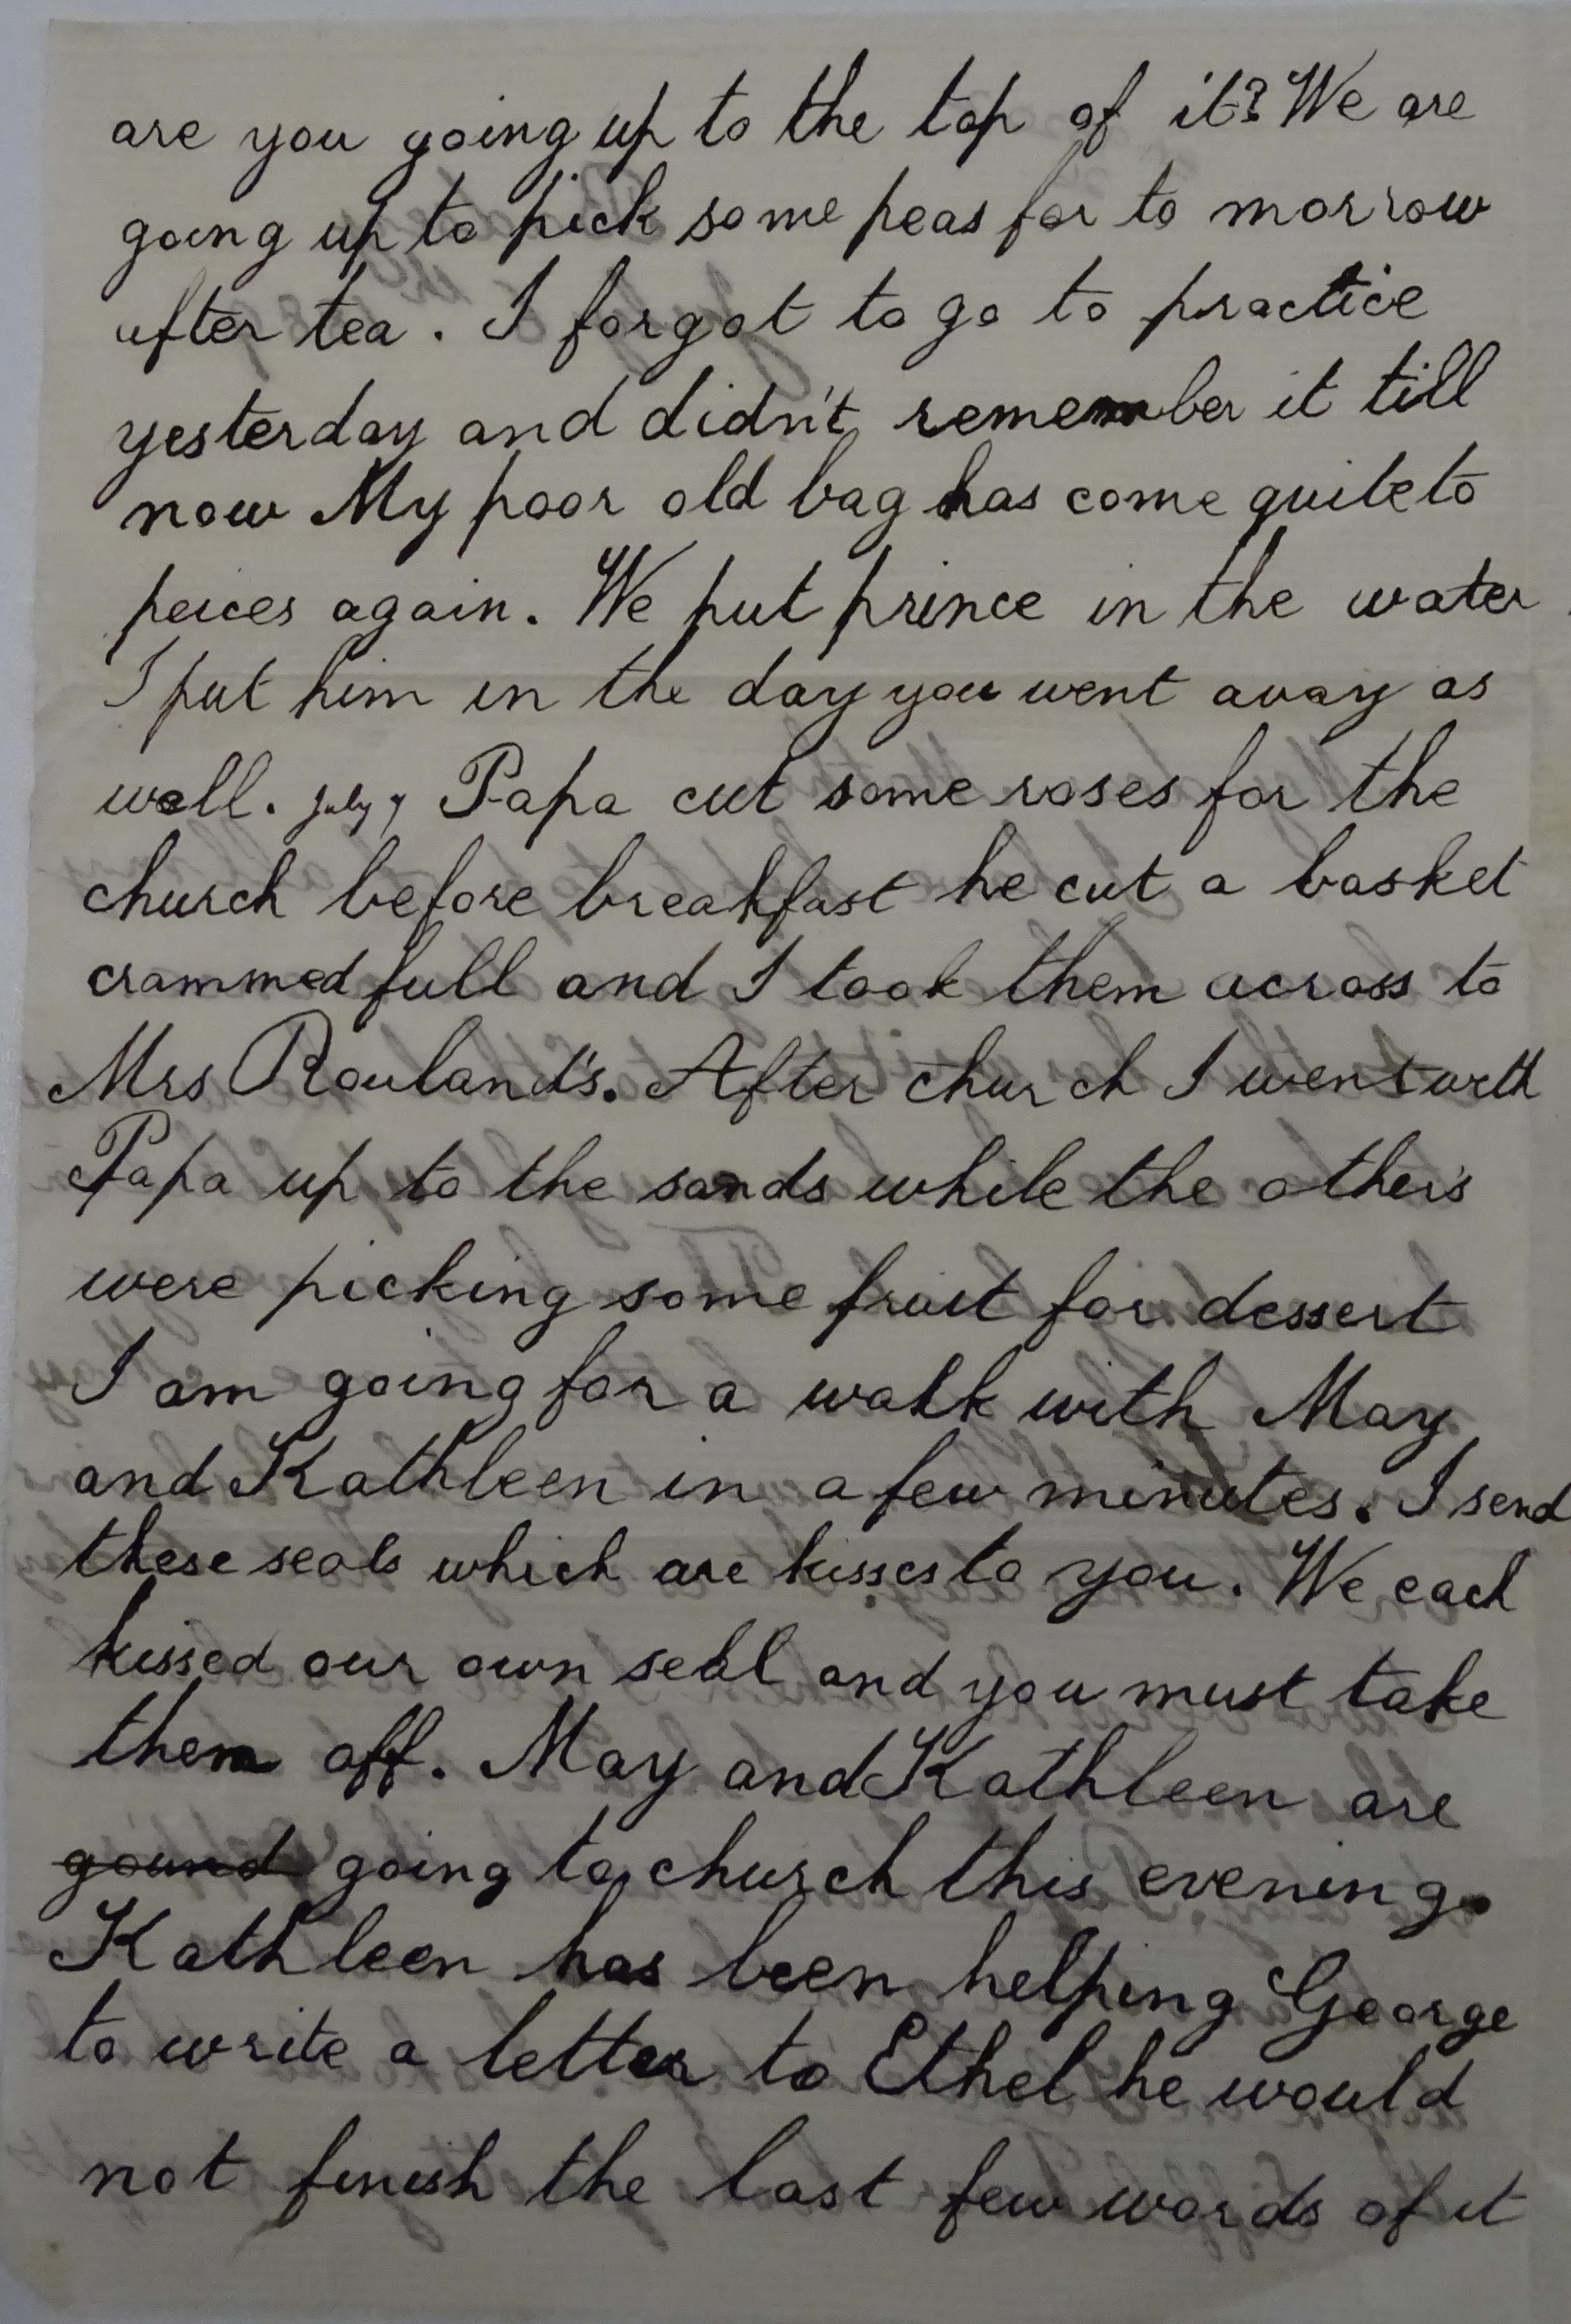 are you going up to the top of it? We are
going up to pick some peas for to morrow
after tea. I forgot to go to practice
yesterday and didn't remember it till
now My poor old bag has come quite to
peices again. We put prince in the water.
I put him in the day you went away as
well. July 7, Papa cut some roses for the
church before breakfast he cut a basket
crammed full and I took them across to
Mrs Rouland's. After church I went with
Papa up to the sands while the others
were picking some fruit for dessert
I am going for a walk with May
and Kathleen in a few minutes. I send
these seals which are kisses to you. We each
kissed our own seal and you must take
them off. May and Kathleen are
gound going to church this evening.
Kathleen has been helping George
to write a letter to Ethel he would
not finish the last few words of it